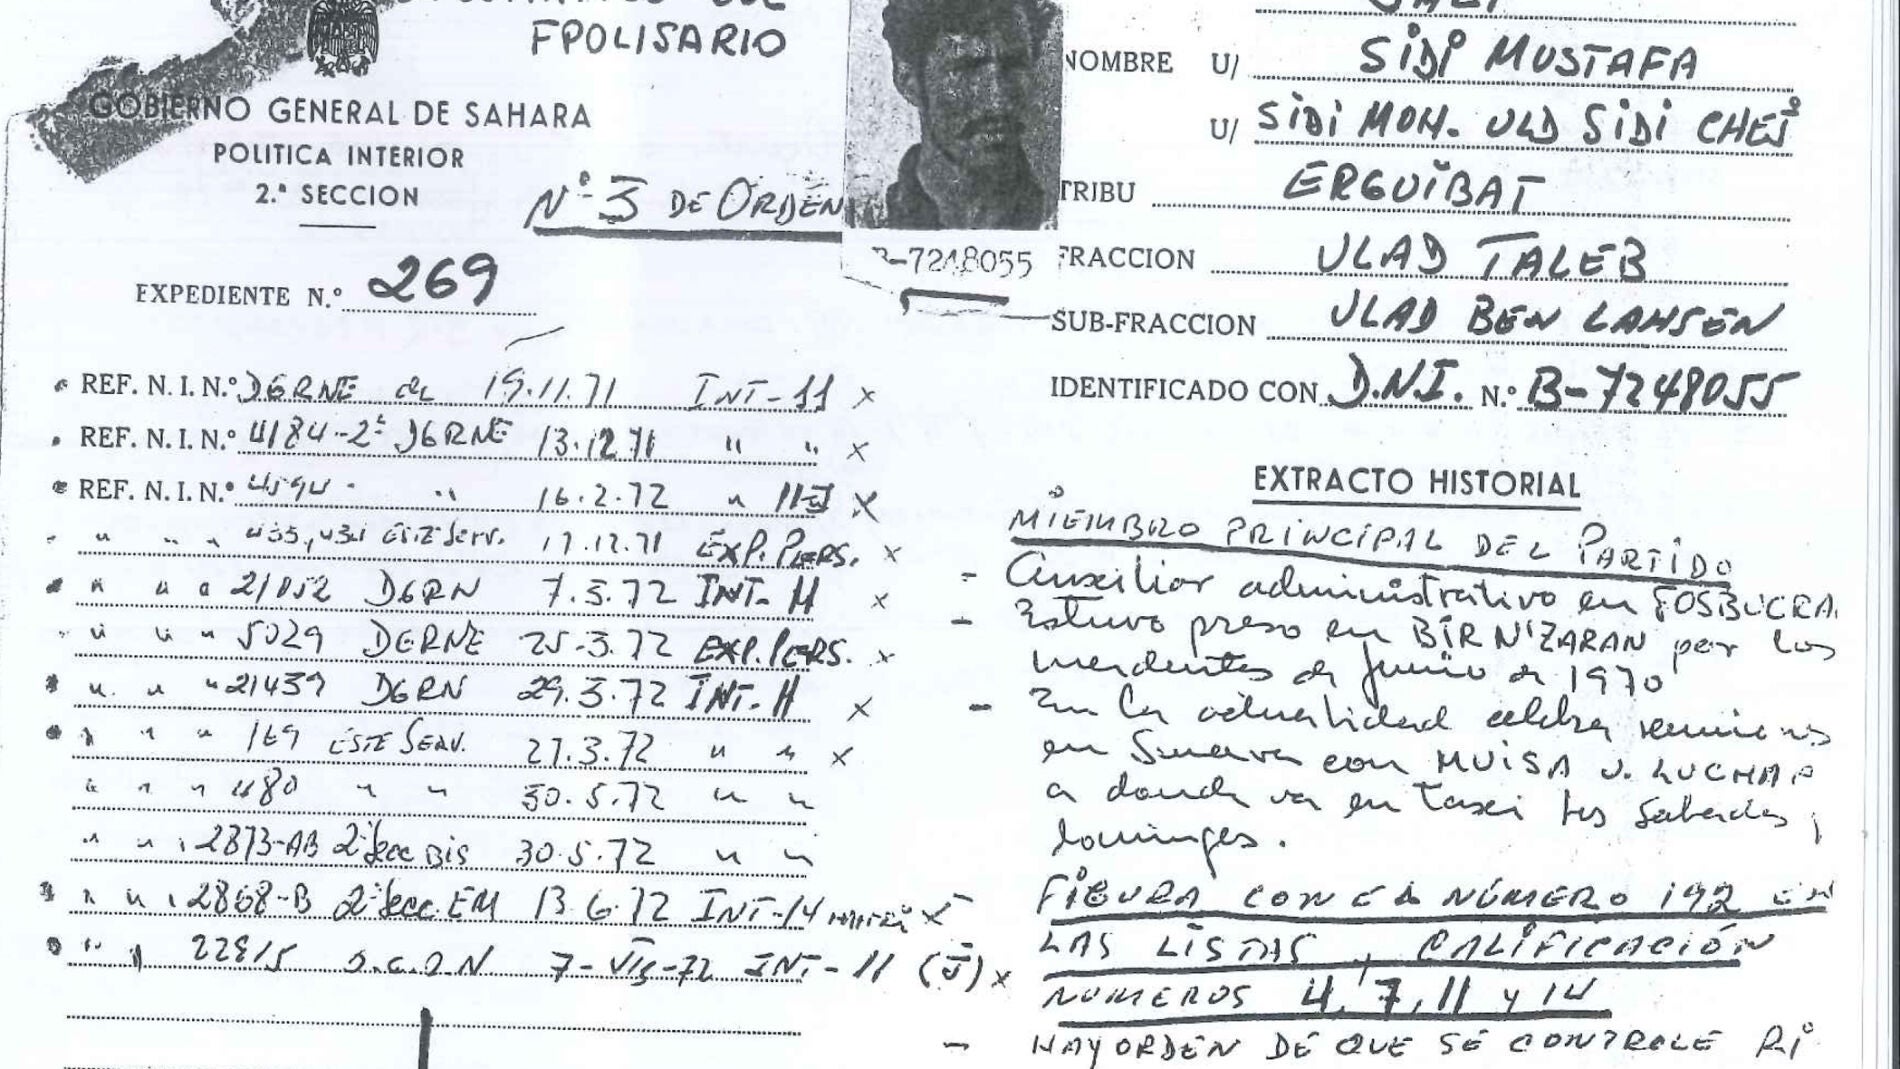 FPOLISARIO
GOBIERNO GENERAL DE SAHARA
POLITICA INTERIOR
2.ª SECCION
Nº 3 DE ORDEN
EXPEDIENTE N.º 269
REF. N. I. N.º DGRNE de 19.11.71 INT-11 x
REF. N. I. N.º 4184-2ª DGRNE 13.12.71 " " x
REF. N. I. N.º " 16.2.72 " 11-J x
" " " ESTE Serv. 17.12.71 EXP. PERS. x
" " " 21052 DGRN 7.3.72 INT-H x
" " " 5029 DGRNE 25-3.72 EXP. PERS. x
" " " 21439 DGRN 29.3.72 INT-H x
" " " 169 ESTE SERV. 27.3.72 " " x
" " " 480 " " 30.5.72 " "
" " " 2873-AB 2ª Secc Bis 30.5.72 " "
" " " 2868-B 2ª Secc. EM 13.6.72 INT-14 x
" " 22815 7-VIII-72 INT-11 (J) x
B-7248055
NOMBRE U/ SIDI MUSTAFA
U/ SIDI MOH. ULD SIDI CHEJ
TRIBU ERGUIBAT
FRACCION ULAD TALEB
SUB-FRACCION ULAD BEN LAHSEN
IDENTIFICADO CON D.N.I. N.º B-7248055
EXTRACTO HISTORIAL
MIEMBRO PRINCIPAL DEL PARTIDO
- Auxiliar administrativo en FOSBUCRA.
- Estuvo preso en BIR N'ZARAN por los
incidentes de Junio de 1970
- En la actualidad celebra reuniones
en Smara con MUISA U. LUCHAA
a donde va en taxi los Sabados y
domingos.
FIGURA CON EL NÚMERO 192 EN
LAS LISTAS, CALIFICACIÓN
NUMEROS 4, 7, 11 y 14
- HAY ORDEN DE QUE SE CONTROLE